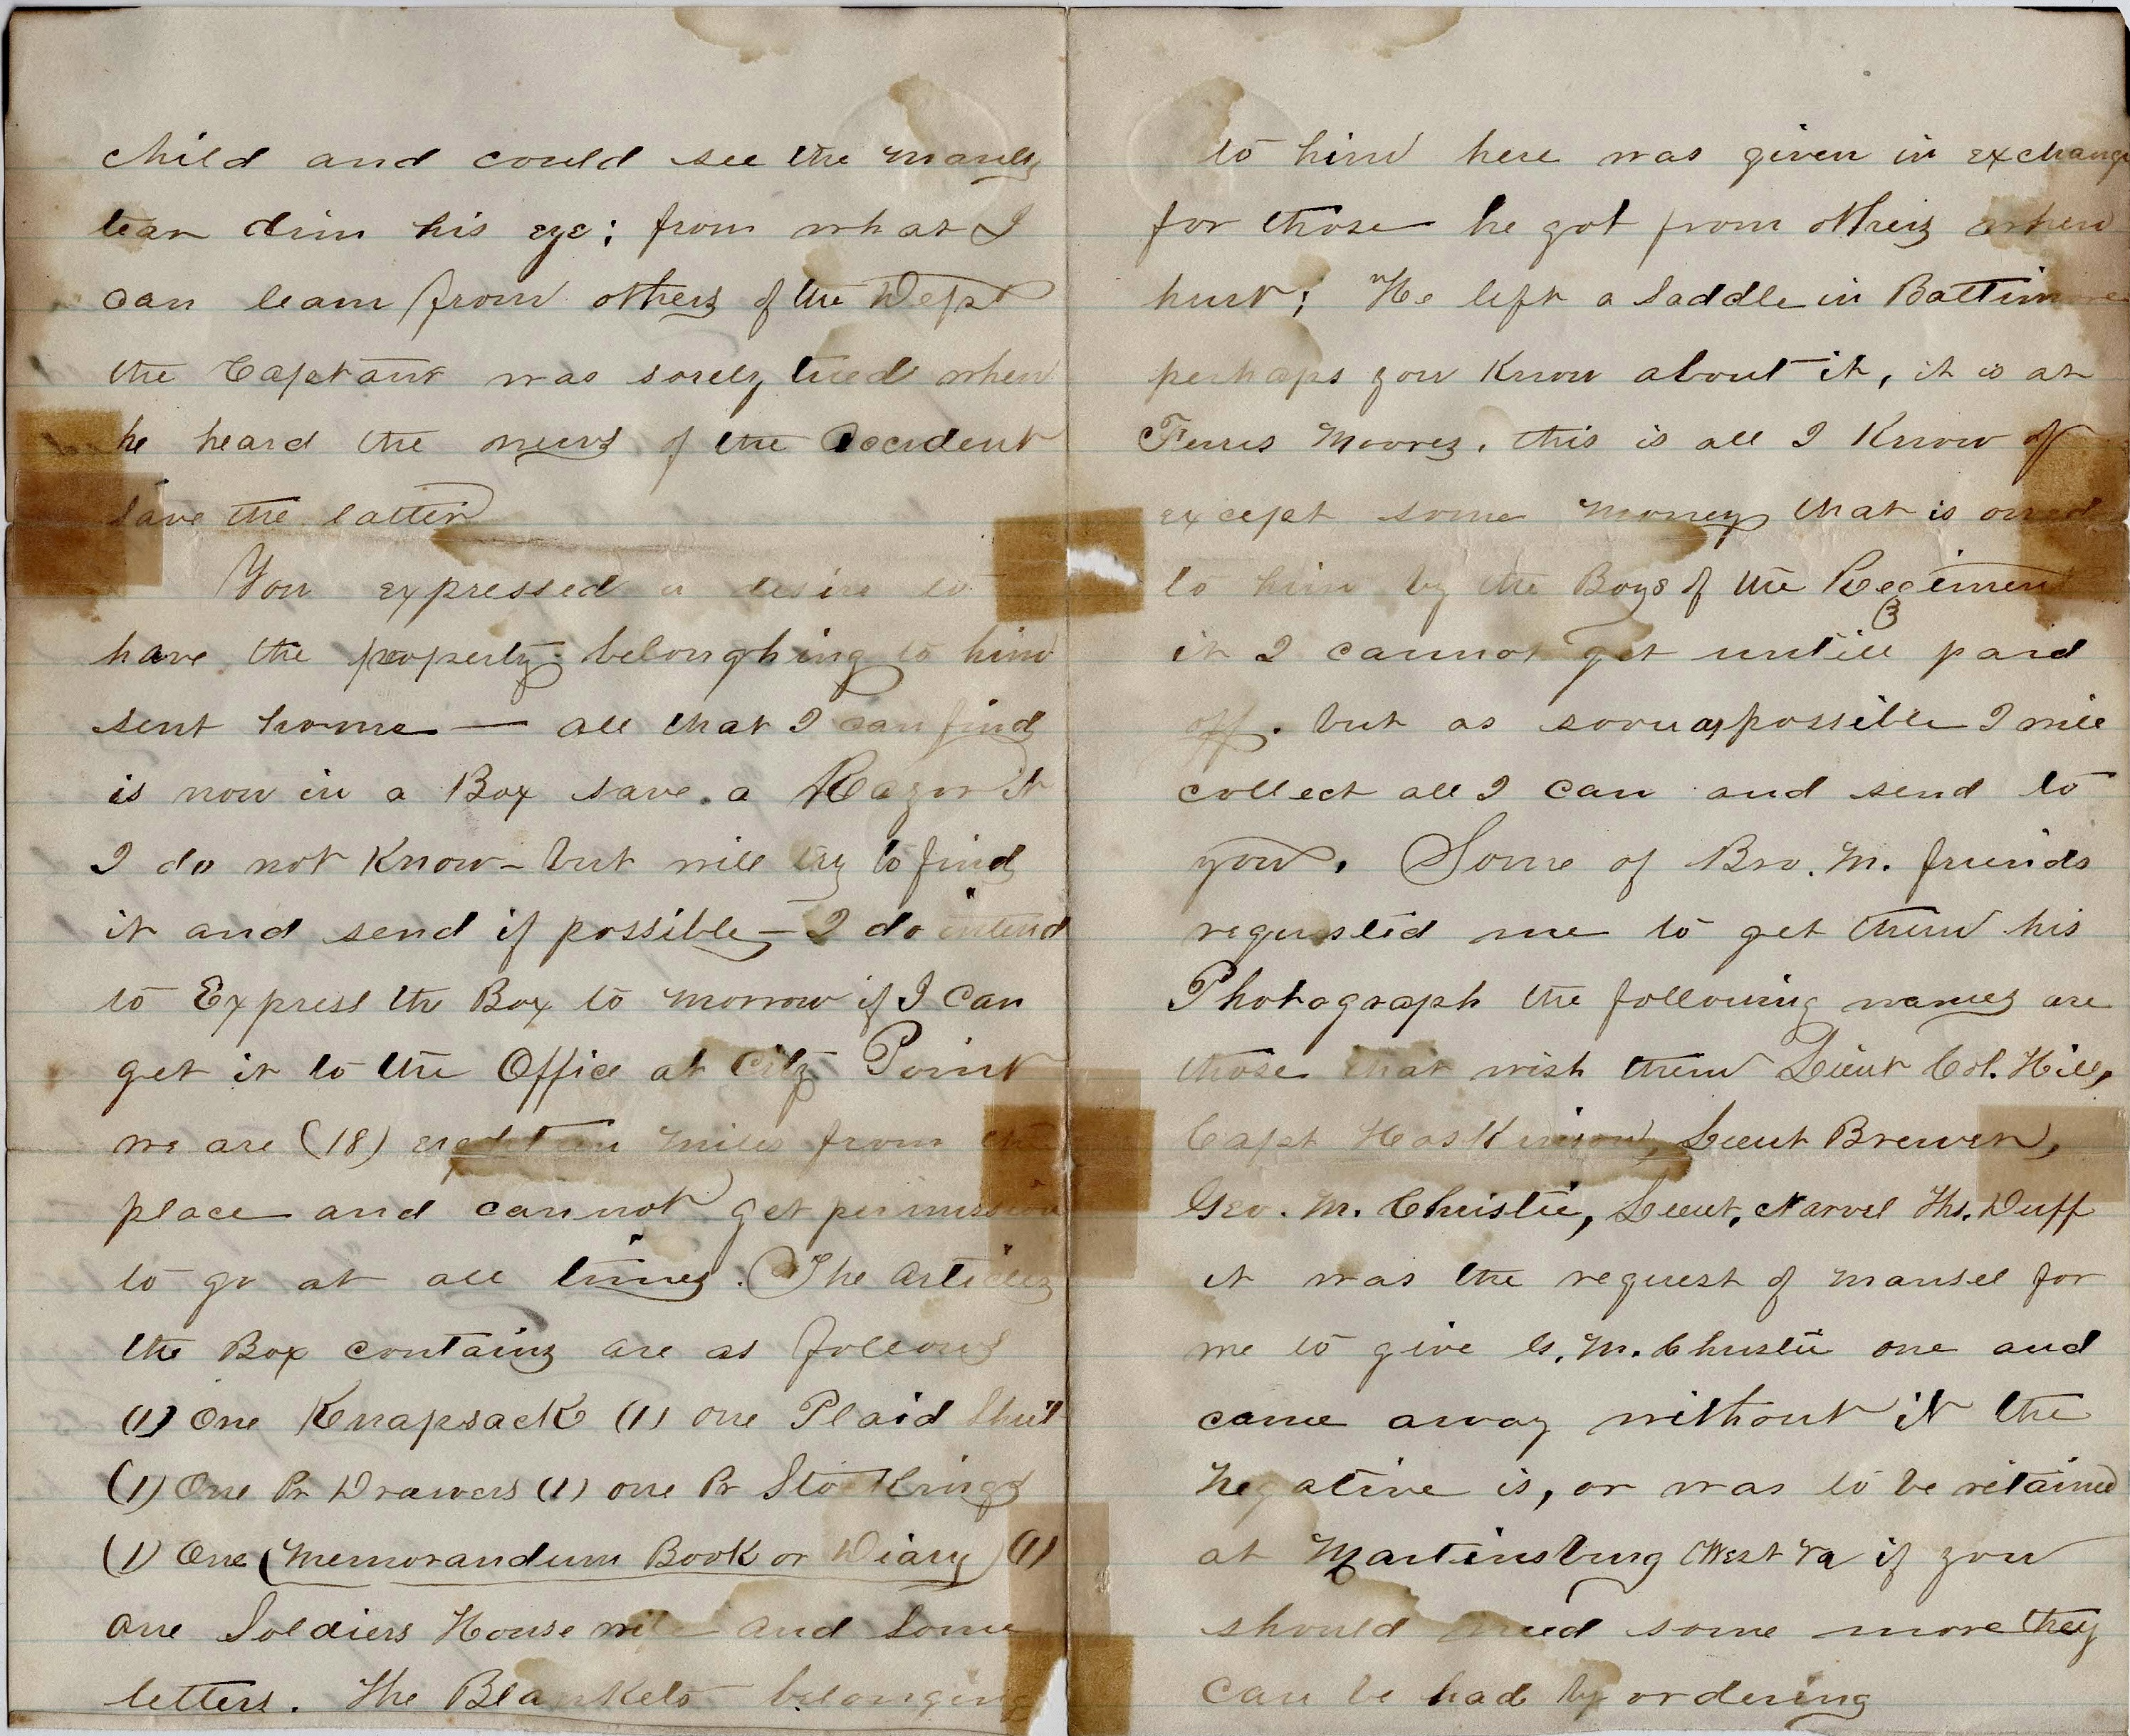 child and could see the manly
tear dim his eye; from what I
can learn from others of the Dept
the Captain was sorely tried when
he heard the news of the Accident
save the latter
You expressed a desire to
have the property belonghing to him
sent home — all that I can find
is now in a Box save a Razor it
I do not Know – but will try to find
it and send if possible – I do intend
to Express the Box to morrow if I can
get it to the Office at City Point
we are (18) eighteen miles from the
place and cannot get permission
to go at all times. The Articles
the Box contains are as follows
(1) One Knapsack (1) one Plaid Shirt
(1) One Pr Drawers (1) one Pr Stockings
(1) One (Memorandum Book or Diary) (1)
one Soldiers House wife and some
letters. The Blankets belonging
to him here was given in exchange
for those he got from others when
hurt; He left a Saddle in Baltimore
perhaps you Know about it, it is at
Ferris Moores. this is all I Know of
except some money that is owed
to him by the Boys of the Regiment
3
it I cannot get untill paid
off. but as soon as possible I will
collect all I can and send to
you. Some of Bro. M. friends
requested me to get them his
Photograph the following names are
those that wish them Lieut Col. Hill,
Capt Hoskinson, Lieut Brewer,
Geo. M. Christie, Lieut. Narvel Ths. Duff
it was the request of Mansel for
me to give G. M. Christie one and
came away without it the
Negative is, or was to be retained
at Martinsburg West Va if you
should need some more they
can be had by ordering